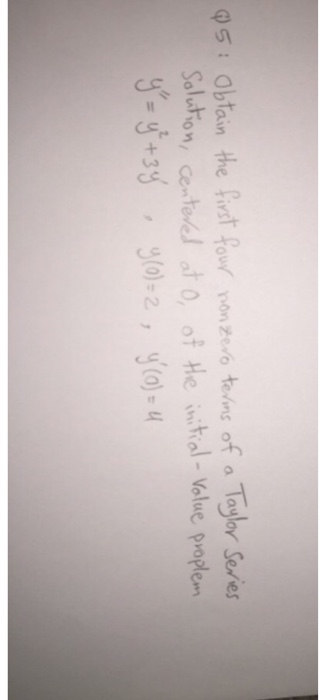 Q5: Obtain the first four nonzero terms of a Taylor Series
Solution, centered at 0, of the initial-value proplem
y'' = y² + 3y' , y(0) = 2 , y'(0) = 4